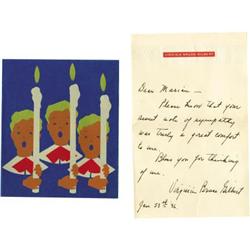 VIRGINIA BRUCE GILBERT
Dear Marian –
Please know that your
sweet note of sympathy
was truly a great comfort
to me.
Bless you for thinking
of me.
Virginia Bruce Gilbert
Jan